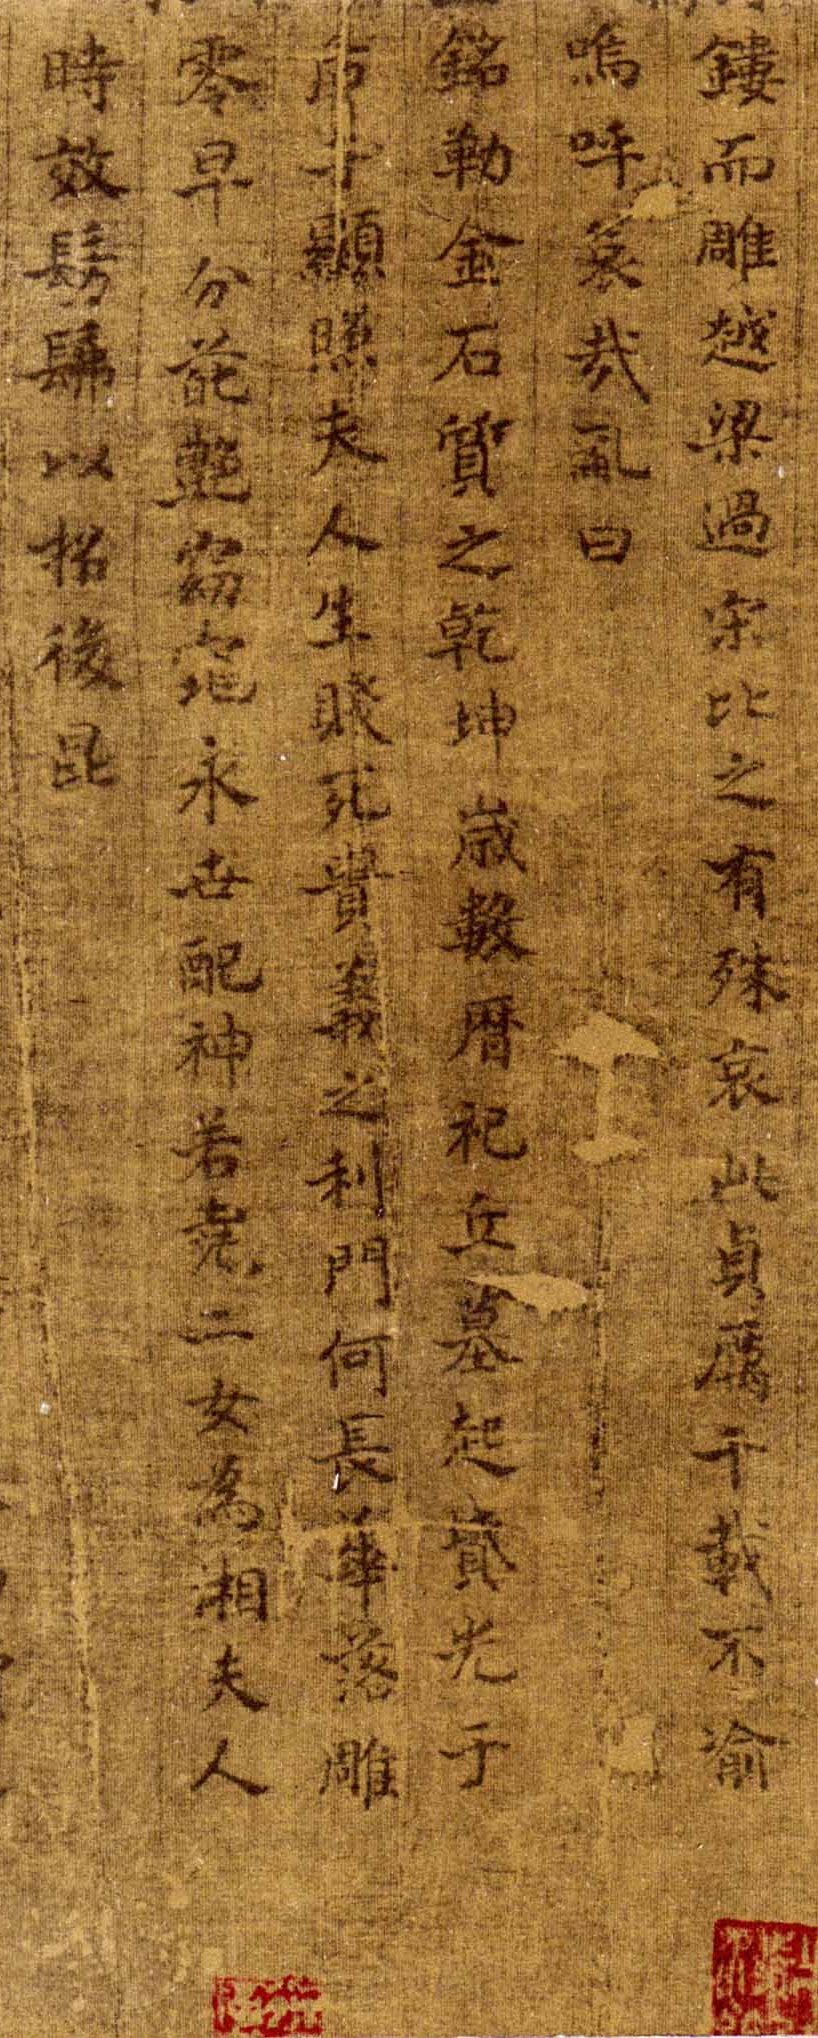 鏤而雕越梁過宋比之有殊哀此貞厲千載不渝
嗚呼哀哉亂曰
銘勒金石質之乾坤歲數暦祀丘墓起墳光于
后土顯照夫人生賤死貴義之利門何長華落雕
零早分葩艷窈窕永世配神若堯二女為湘夫人
時效髣髴以招後昆